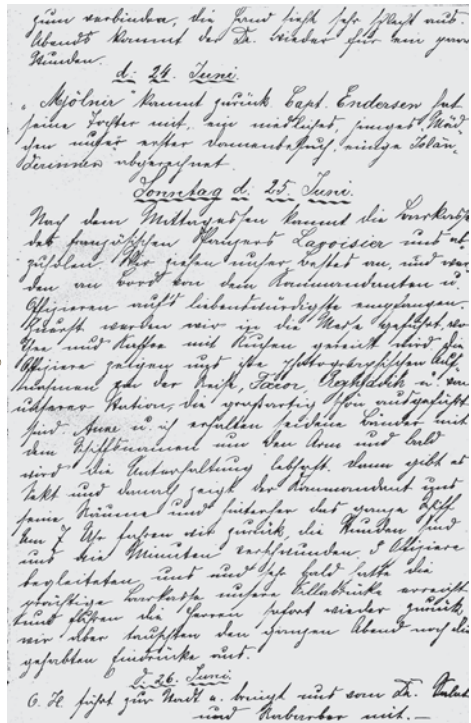 zum verbinden, die Hand sieht sehr schlecht aus.
Abends kommt der Dr. wieder für ein paar
Stunden.
d. 24. Juni.
„Mjölnir" kommt zurück Capt. Endersen hat
seine Tochter mit, ein niedliches, junges Mäd-
chen unser erster Damenbesuch, einige Islän-
derinnen abgerechnet.
Sonntag d. 25. Juni.
Nach dem Mittagessen kommt die Barkasse
des französischen Lavoisier uns ab
zuholen. Wir ziehen unser Bestes an, und wer
den an Bord von dem Kommandanten u.
Offizieren auf's liebenswürdigste empfangen.
Zuerst werden wir in die Messe geführt, wo
Thee und Kaffee mit Kuchen gereicht wird die
Offiziere zeigen uns ihre photographischen Auf-
nahmen von der Reise, u. von
unserer Station, die großartig schön ausgeführt
sind. Anne u. ich erhalten seidene Bänder mit
dem Schiffsnamen um den Arm und bald
wird die Unterhaltung lebhaft. Dann gibt es
Sekt und danach zeigt der Kommandant uns
seine Räume und hinterher das ganze Schiff
Um 7 Uhr fahren wir zurück, die Stunden sind
uns wie Minuten verschwunden, 5 Offiziere
begleiteten uns und sehr bald hatte die
prächtige Barkasse unsere Villabrücke erreicht
und fuhren die Herren sofort wieder zurück
wir aber tauschten den ganzen Abend noch die
gehabten Eindrücke aus.
d. 26. Juni.
C. H. fährt zur Stadt u. bringt uns vom Dr. Salat
und Rabarber mit.—